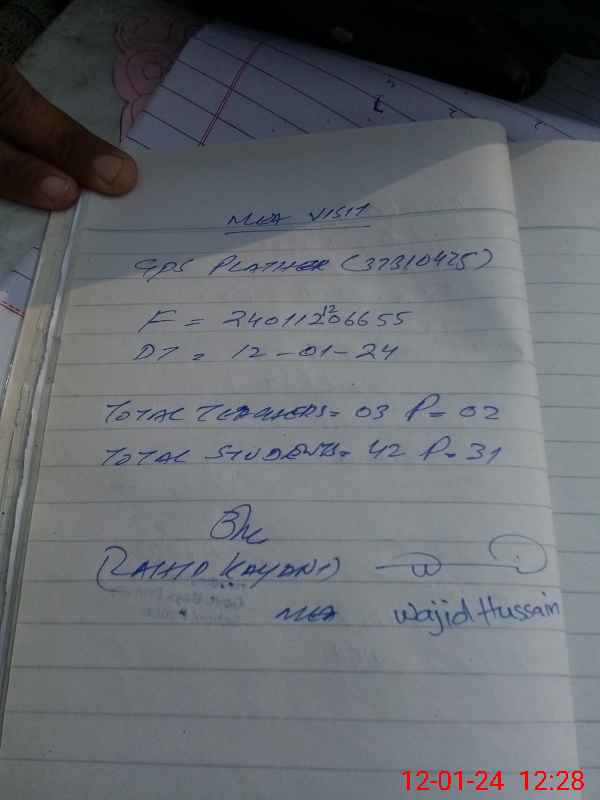 MEA VISIT
GPS PLATHER (37310475)
F = 24011206655
12
DT = 12-01-24
TOTAL TEACHERS = 03 P = 02
TOTAL STUDENTS = 42 P = 31
(RASHID KAYANI)
MEA
Wajid Hussain
12-01-24 12:28